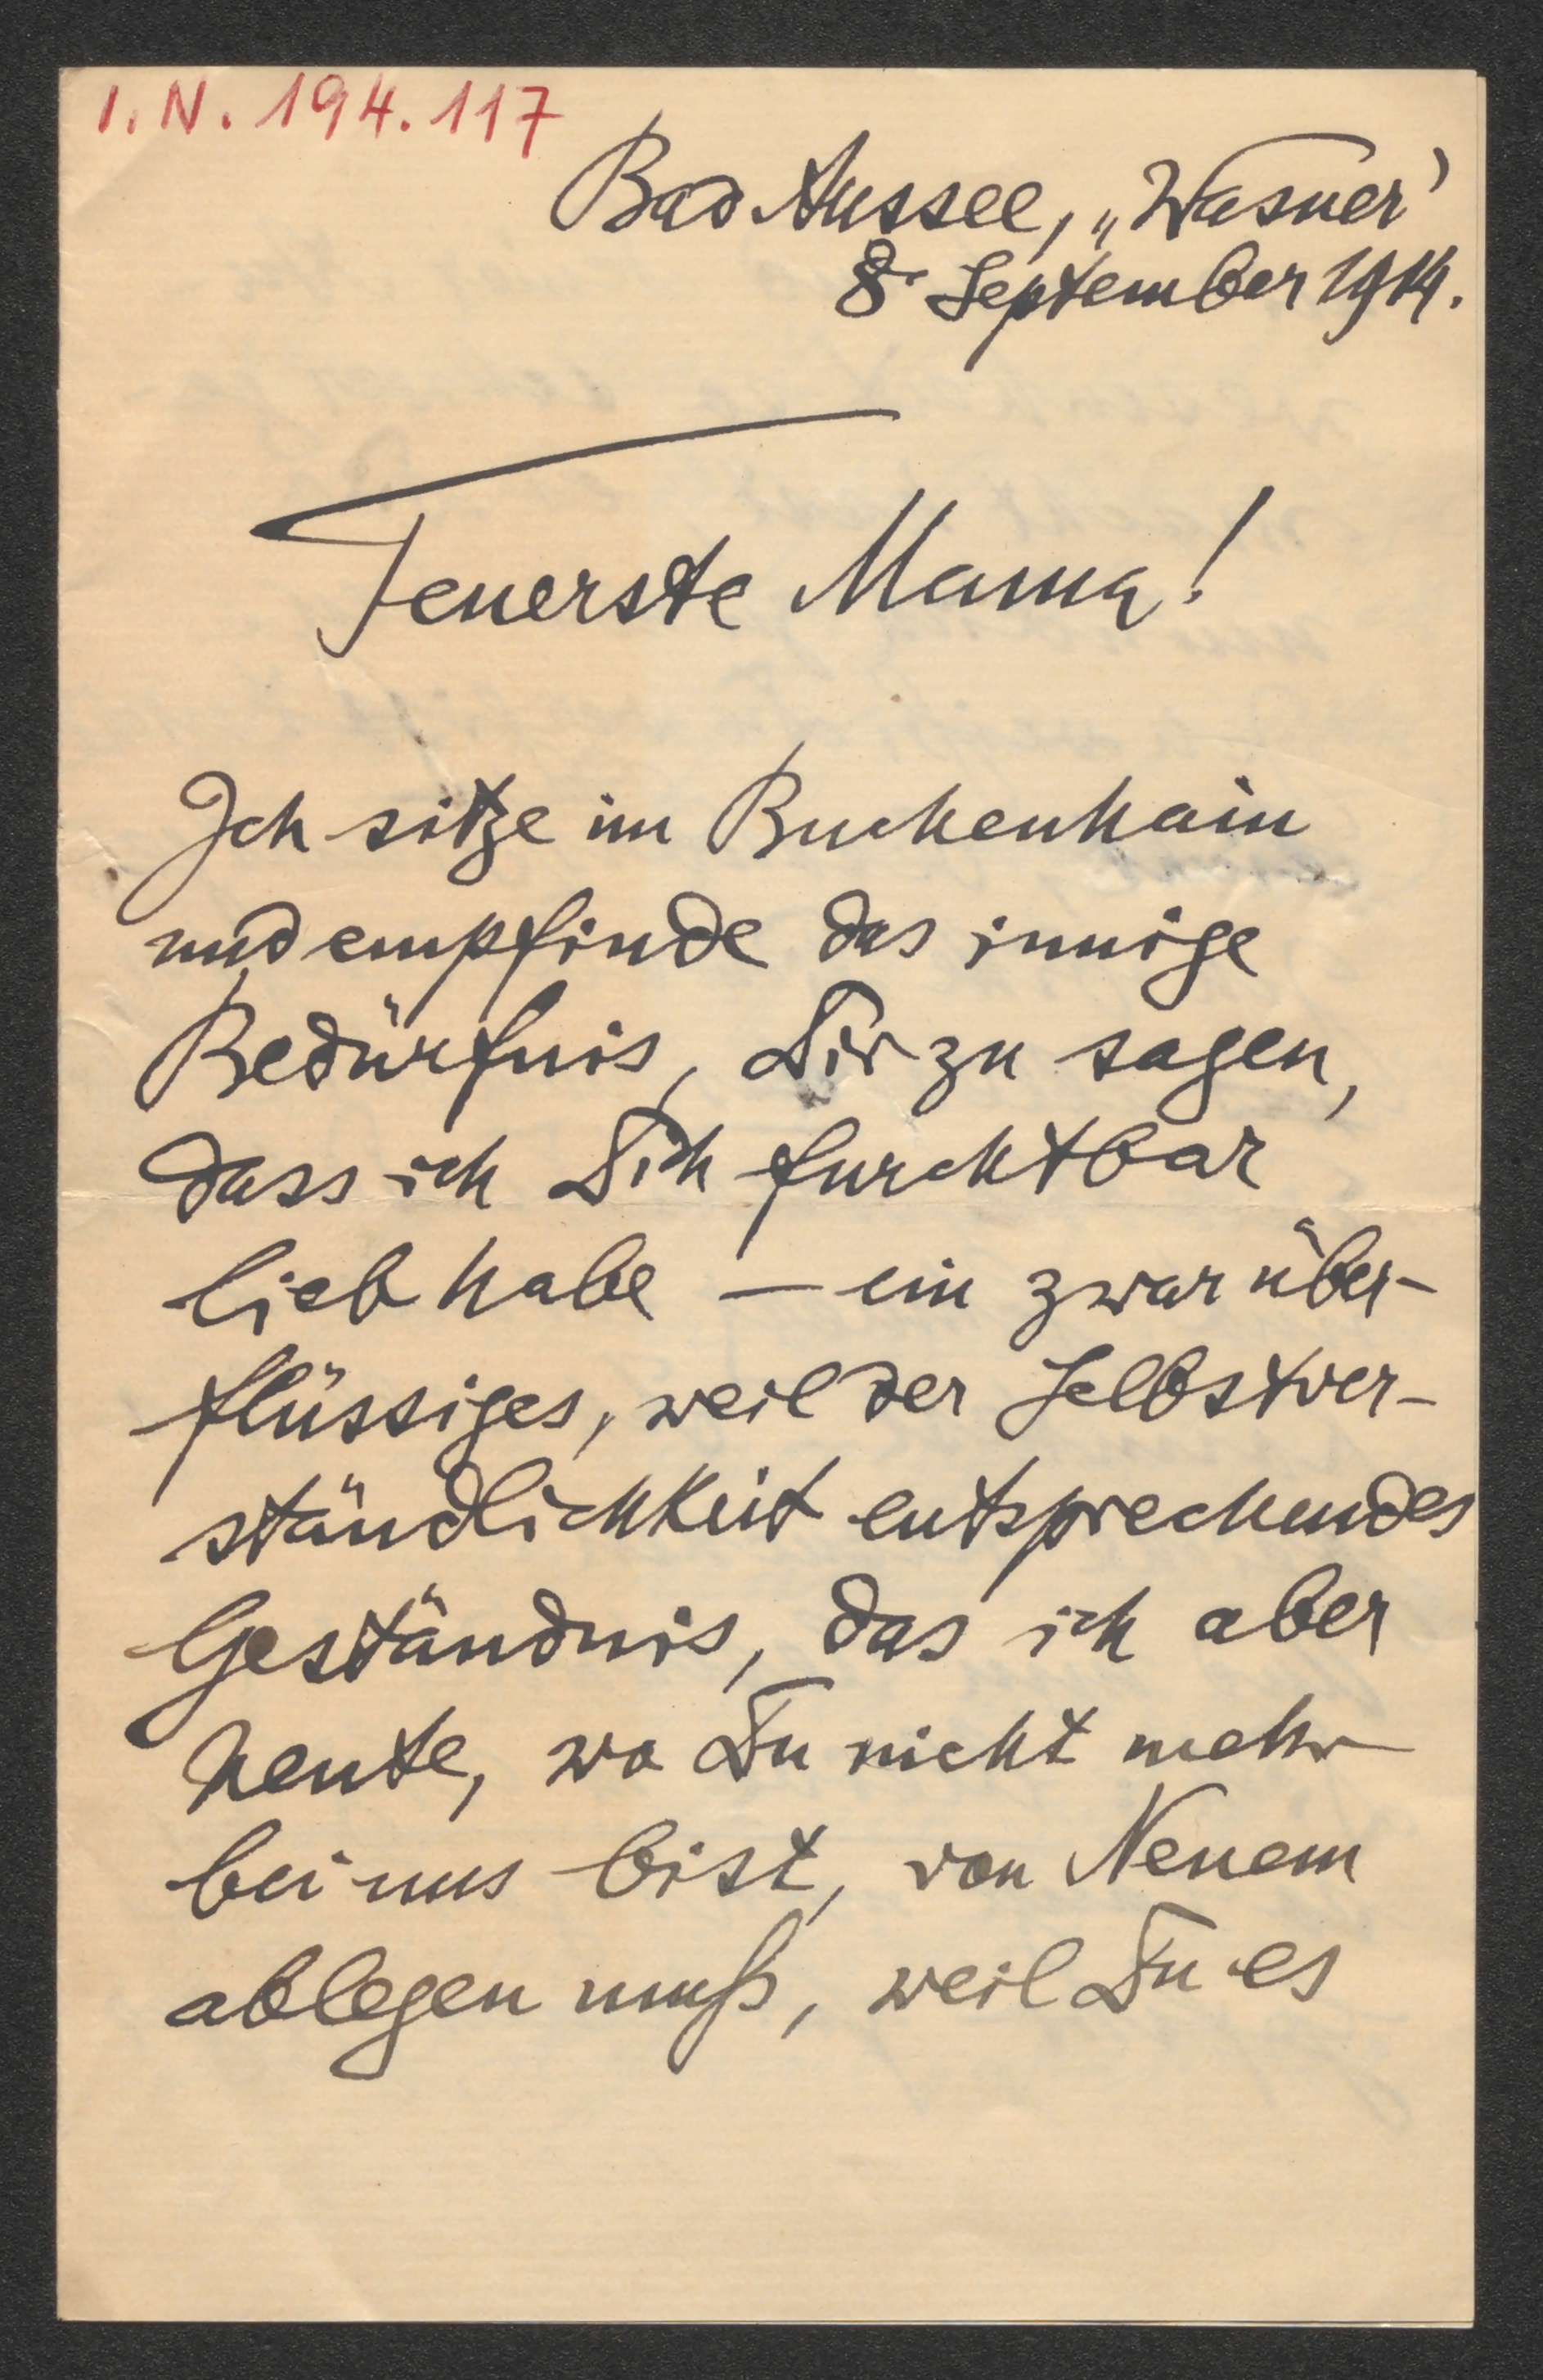 I. N. 194.117
Bad Aussee, „Wasner'
8. September 1914.
Teuerste Mama!
Ich sitze im Buchenhain
und empfinde das innige
Bedürfnis, Dir zu sagen,
dass ich Dich furchtbar
lieb habe — ein zwar über-
flüssiges, weil der Selbstver-
ständlichkeit entsprechendes
Geständnis, das ich aber
heute, wo Du nicht mehr
bei uns bist, von Neuem
ablegen muß, weil Du es